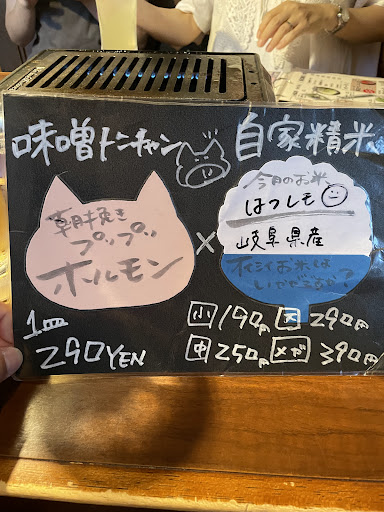 味噌トンチャン
自家精米
朝挽き
プップッ
ホルモン
×
今月のお米
はつしモ
岐阜県産
お米は
いかがですか?
1皿
290YEN
小 190円 大 290円
中 250円 メガ 390円